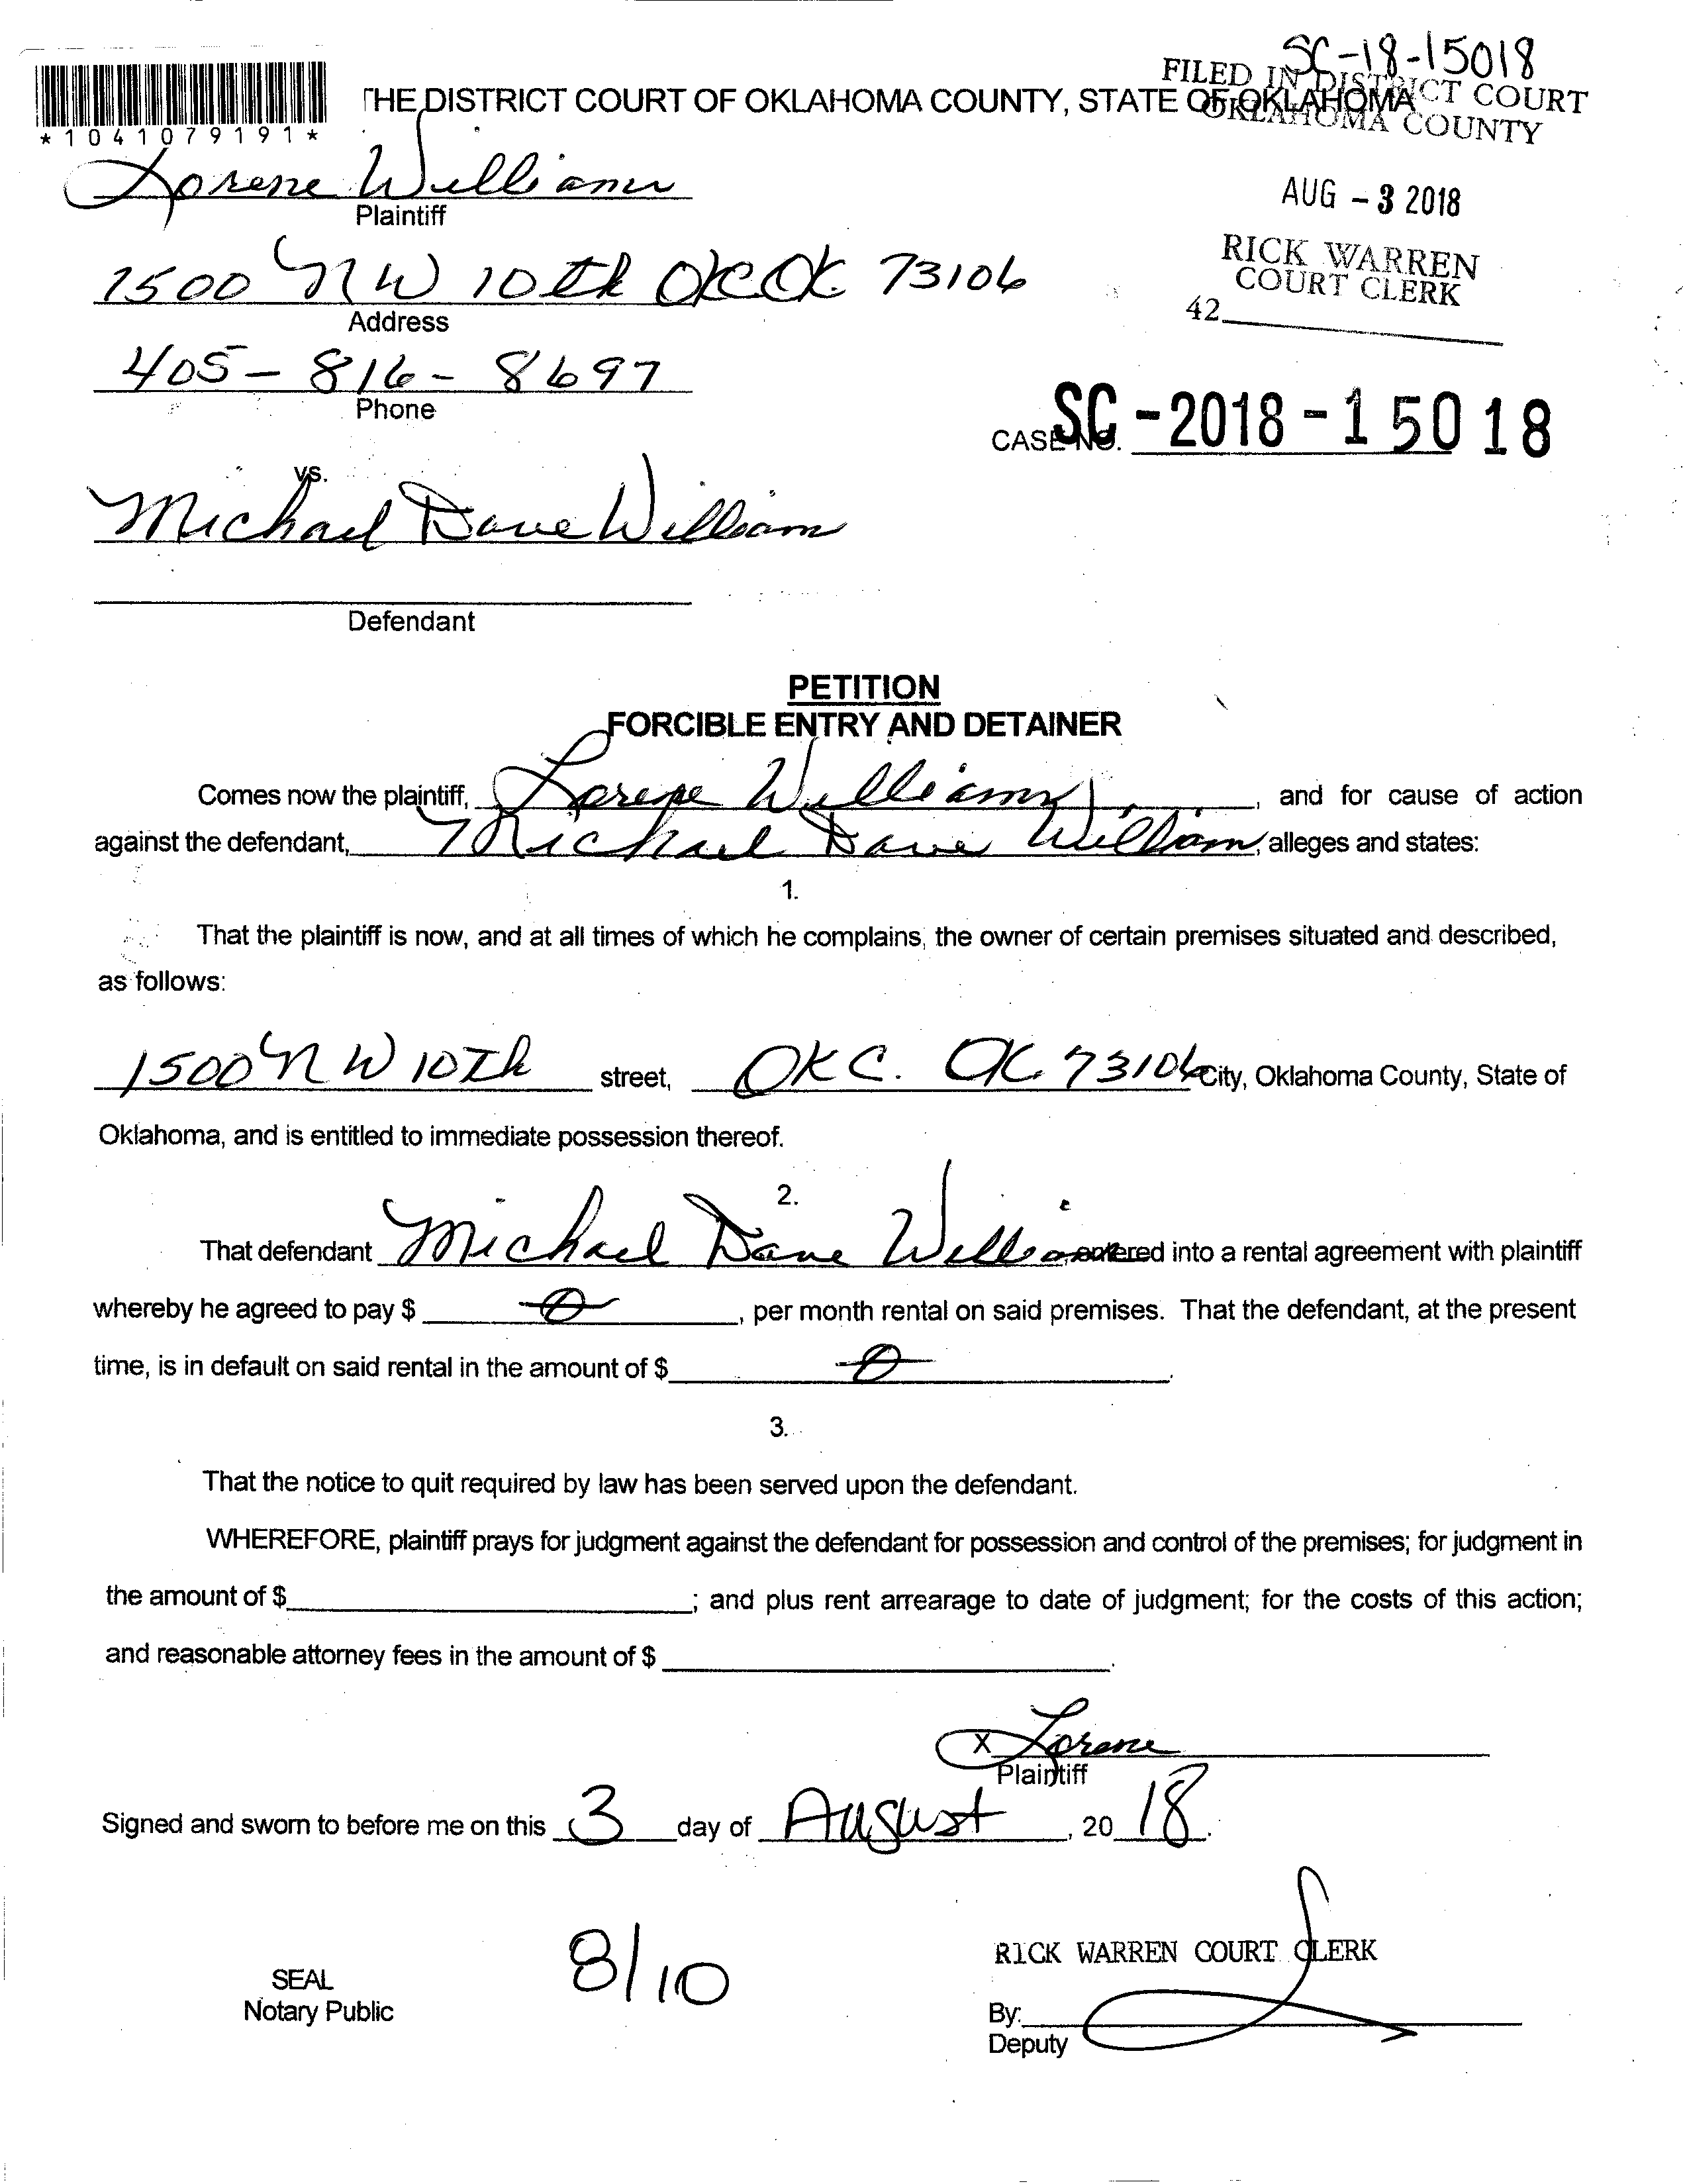 SC-18-15018
FILED IN DISTRICT COURT
OKLAHOMA COUNTY
THE DISTRICT COURT OF OKLAHOMA COUNTY, STATE OF OKLAHOMA
*1041079191*
Lorene Williams
Plaintiff
AUG - 3 2018
1500 NW 10th OKC OK 73106
Address
RICK WARREN
COURT CLERK
42
405-816-8697
Phone
CASE NO. SC-2018-15018
vs.
Michael Dave William
Defendant
PETITION
FORCIBLE ENTRY AND DETAINER
Comes now the plaintiff, Lorene Williams, and for cause of action
against the defendant, Michael Dave William, alleges and states:
1.
That the plaintiff is now, and at all times of which he complains, the owner of certain premises situated and described,
as follows:
1500 NW 10th street, OKC. OK. 73106 City, Oklahoma County, State of
Oklahoma, and is entitled to immediate possession thereof.
2.
That defendant Michael Dave William, entered into a rental agreement with plaintiff
whereby he agreed to pay $ 0, per month rental on said premises. That the defendant, at the present
time, is in default on said rental in the amount of $ 0.
3.
That the notice to quit required by law has been served upon the defendant.
WHEREFORE, plaintiff prays for judgment against the defendant for possession and control of the premises; for judgment in
the amount of $ ; and plus rent arrearage to date of judgment; for the costs of this action;
and reasonable attorney fees in the amount of $ .
X Lorene
Plaintiff
Signed and sworn to before me on this 3 day of August, 20 18.
8/10
RICK WARREN COURT CLERK
SEAL
Notary Public
By:
Deputy